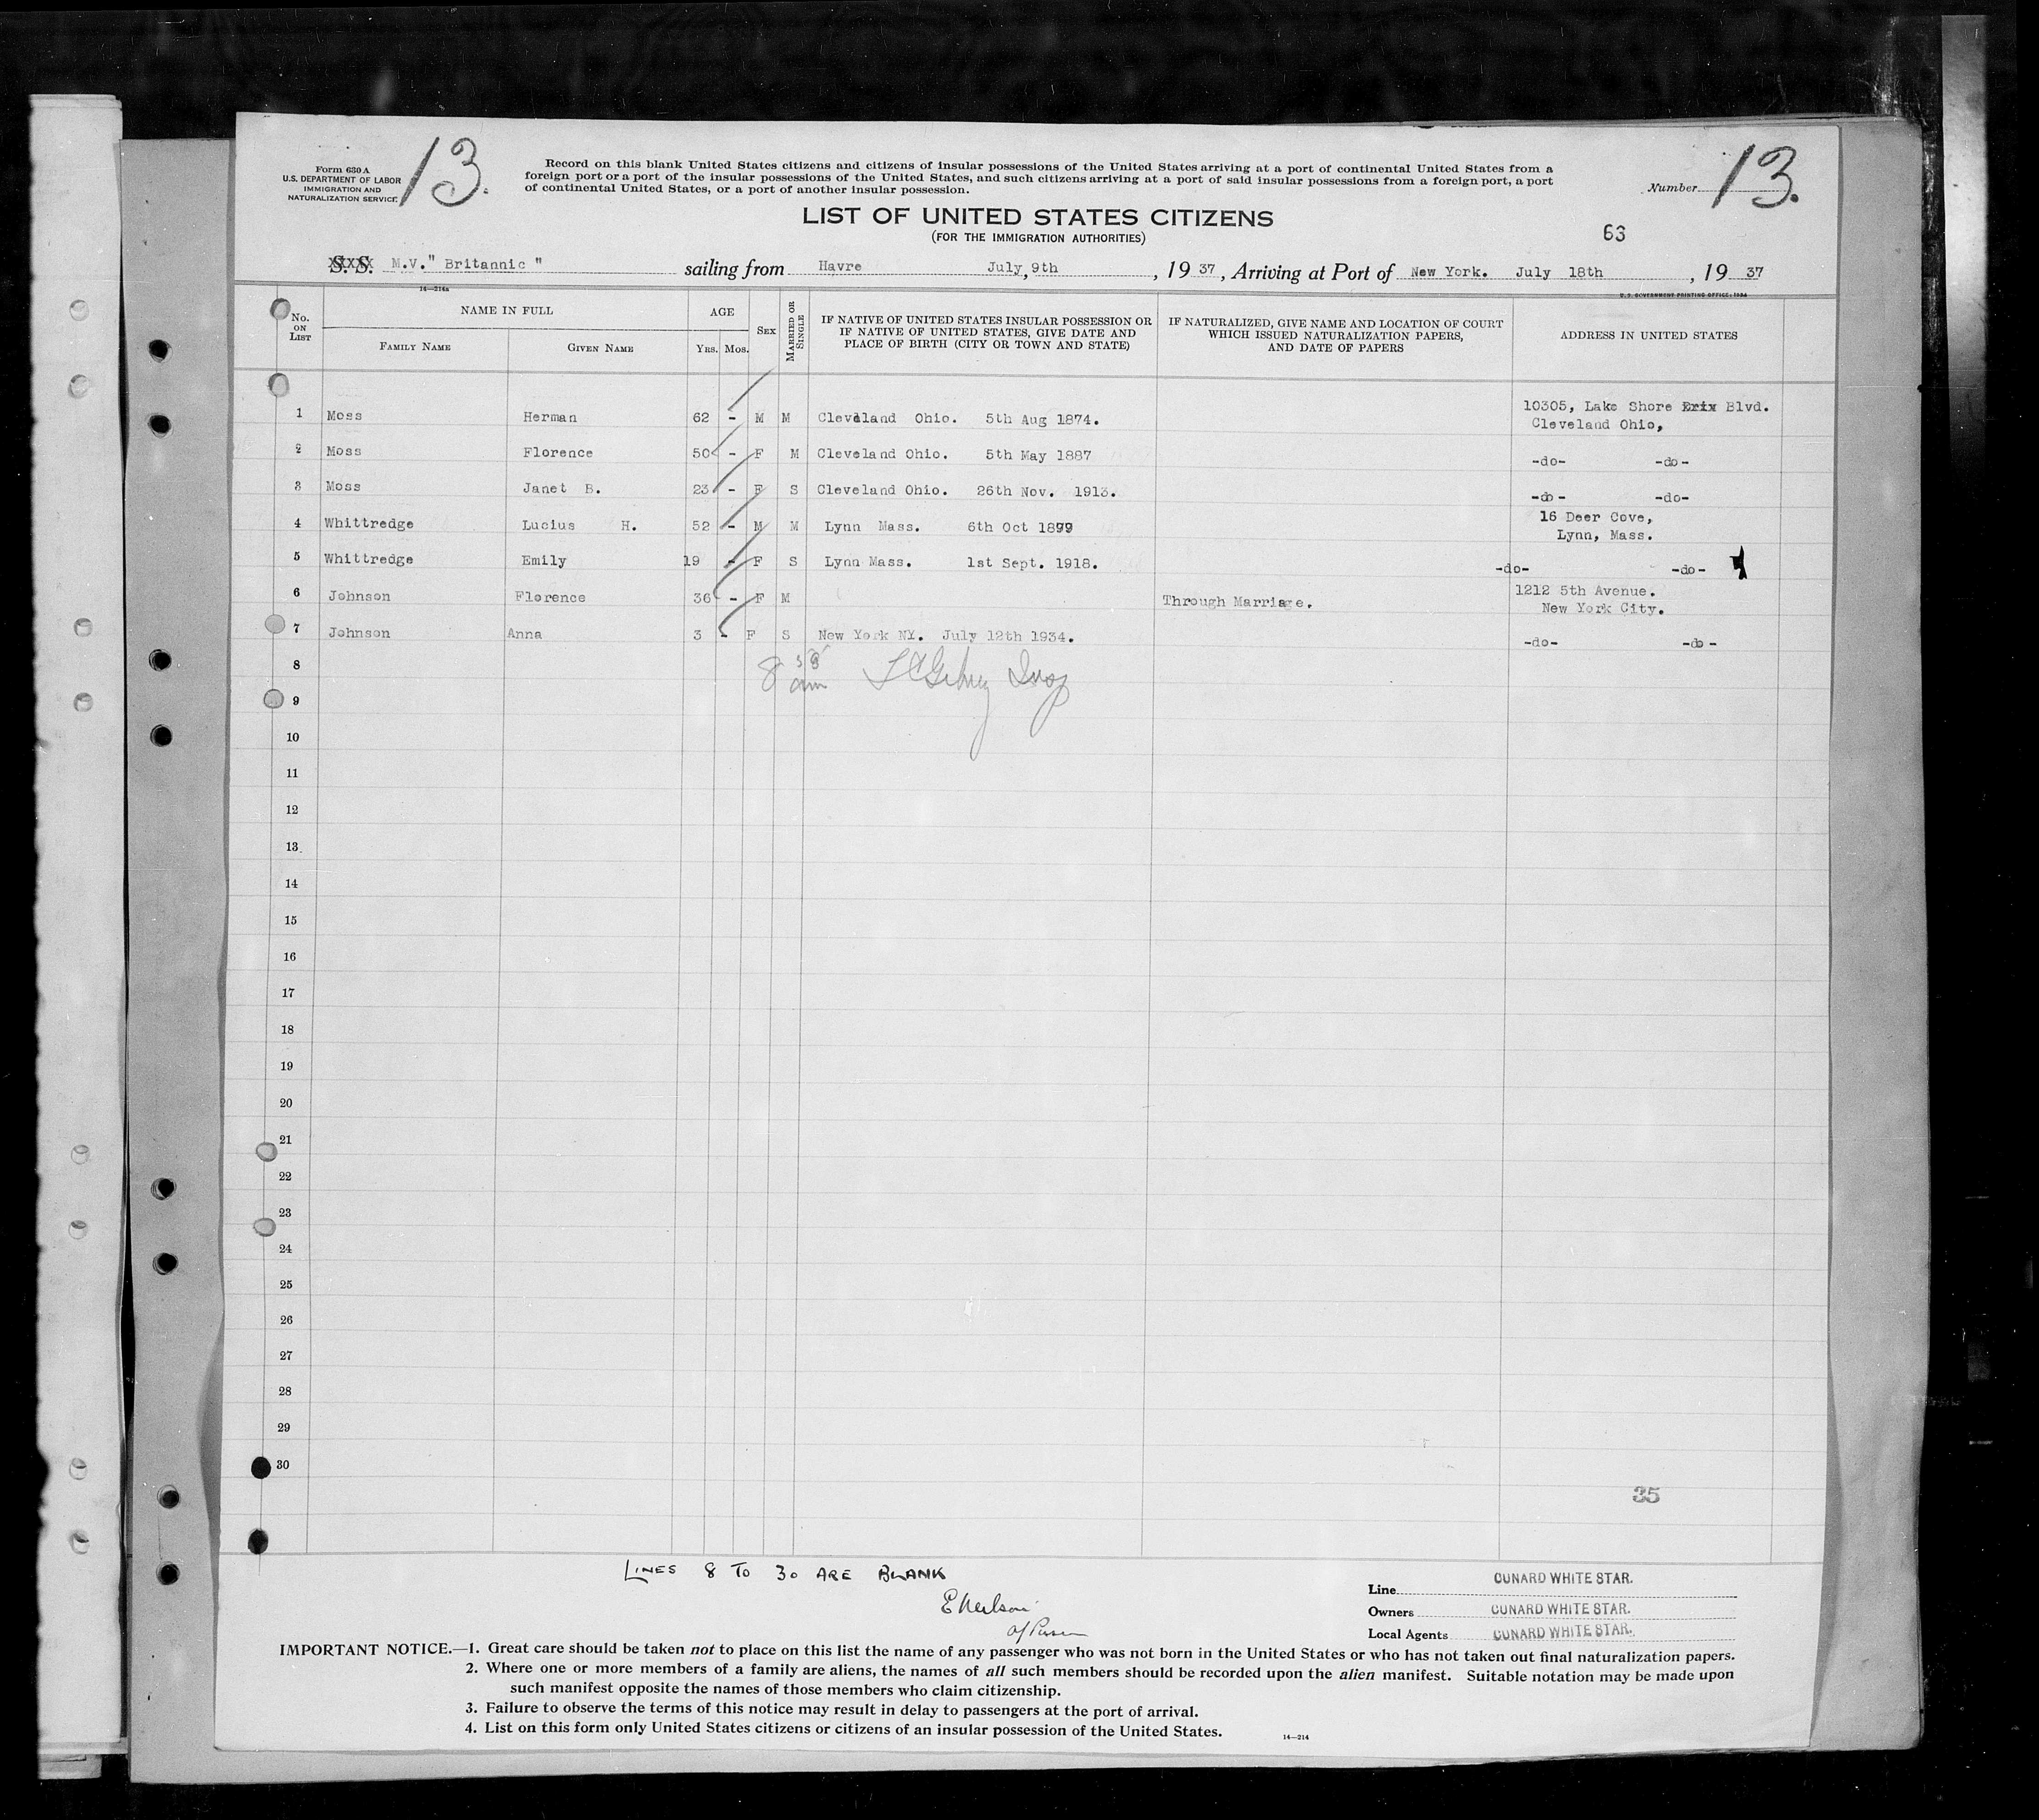 Form 630 A
U.S. DEPARTMENT OF LABOR
IMMIGRATION AND
NATURALIZATION SERVICE
13.
Record on this blank United States citizens and citizens of insular possessions of the United States arriving at a port of continental United States from a
foreign port or a port of the insular possessions of the United States, and such citizens arriving at a port of said insular possessions from a foreign port, a port
of continental United States, or a port of another insular possession.
Number 13.
LIST OF UNITED STATES CITIZENS
(FOR THE IMMIGRATION AUTHORITIES)
63
S. S. M.V." Britannic " sailing from Havre July, 9th, 19 37, Arriving at Port of New York. July 18th, 19 37
14—214a
U. S. GOVERNMENT PRINTING OFFICE: 1934
No. ON LIST
NAME IN FULL
FAMILY NAME GIVEN NAME
AGE
YRS. MOS.
SEX
MARRIED OR SINGLE
IF NATIVE OF UNITED STATES INSULAR POSSESSION OR
IF NATIVE OF UNITED STATES, GIVE DATE AND
PLACE OF BIRTH (CITY OR TOWN AND STATE)
IF NATURALIZED, GIVE NAME AND LOCATION OF COURT
WHICH ISSUED NATURALIZATION PAPERS,
AND DATE OF PAPERS
ADDRESS IN UNITED STATES
1 Moss Herman 62 - M M Cleveland Ohio. 5th Aug 1874. 10305, Lake Shore Erix Blvd.
Cleveland Ohio,
2 Moss Florence 50 - F M Cleveland Ohio. 5th May 1887 -do- -do-
3 Moss Janet B. 23 - F S Cleveland Ohio. 26th Nov. 1913. -do- -do-
4 Whittredge Lucius H. 52 - M M Lynn Mass. 6th Oct 1899 16 Deer Cove,
Lynn, Mass.
5 Whittredge Emily 19 - F S Lynn Mass. 1st Sept. 1918. -do- -do-
6 Johnson Florence 36 - F M Through Marriage. 1212 5th Avenue.
New York City.
7 Johnson Anna 3 - F S New York NY. July 12th 1934. -do- -do-
8
8 am Insp
9
10
11
12
13
14
15
16
17
18
19
20
21
22
23
24
25
26
27
28
29
30
35
LINES 8 TO 30 ARE BLANK
Line CUNARD WHITE STAR.
Owners CUNARD WHITE STAR.
Local Agents CUNARD WHITE STAR.
IMPORTANT NOTICE.—1. Great care should be taken not to place on this list the name of any passenger who was not born in the United States or who has not taken out final naturalization papers.
2. Where one or more members of a family are aliens, the names of all such members should be recorded upon the alien manifest. Suitable notation may be made upon
such manifest opposite the names of those members who claim citizenship.
3. Failure to observe the terms of this notice may result in delay to passengers at the port of arrival.
4. List on this form only United States citizens or citizens of an insular possession of the United States.
14—214